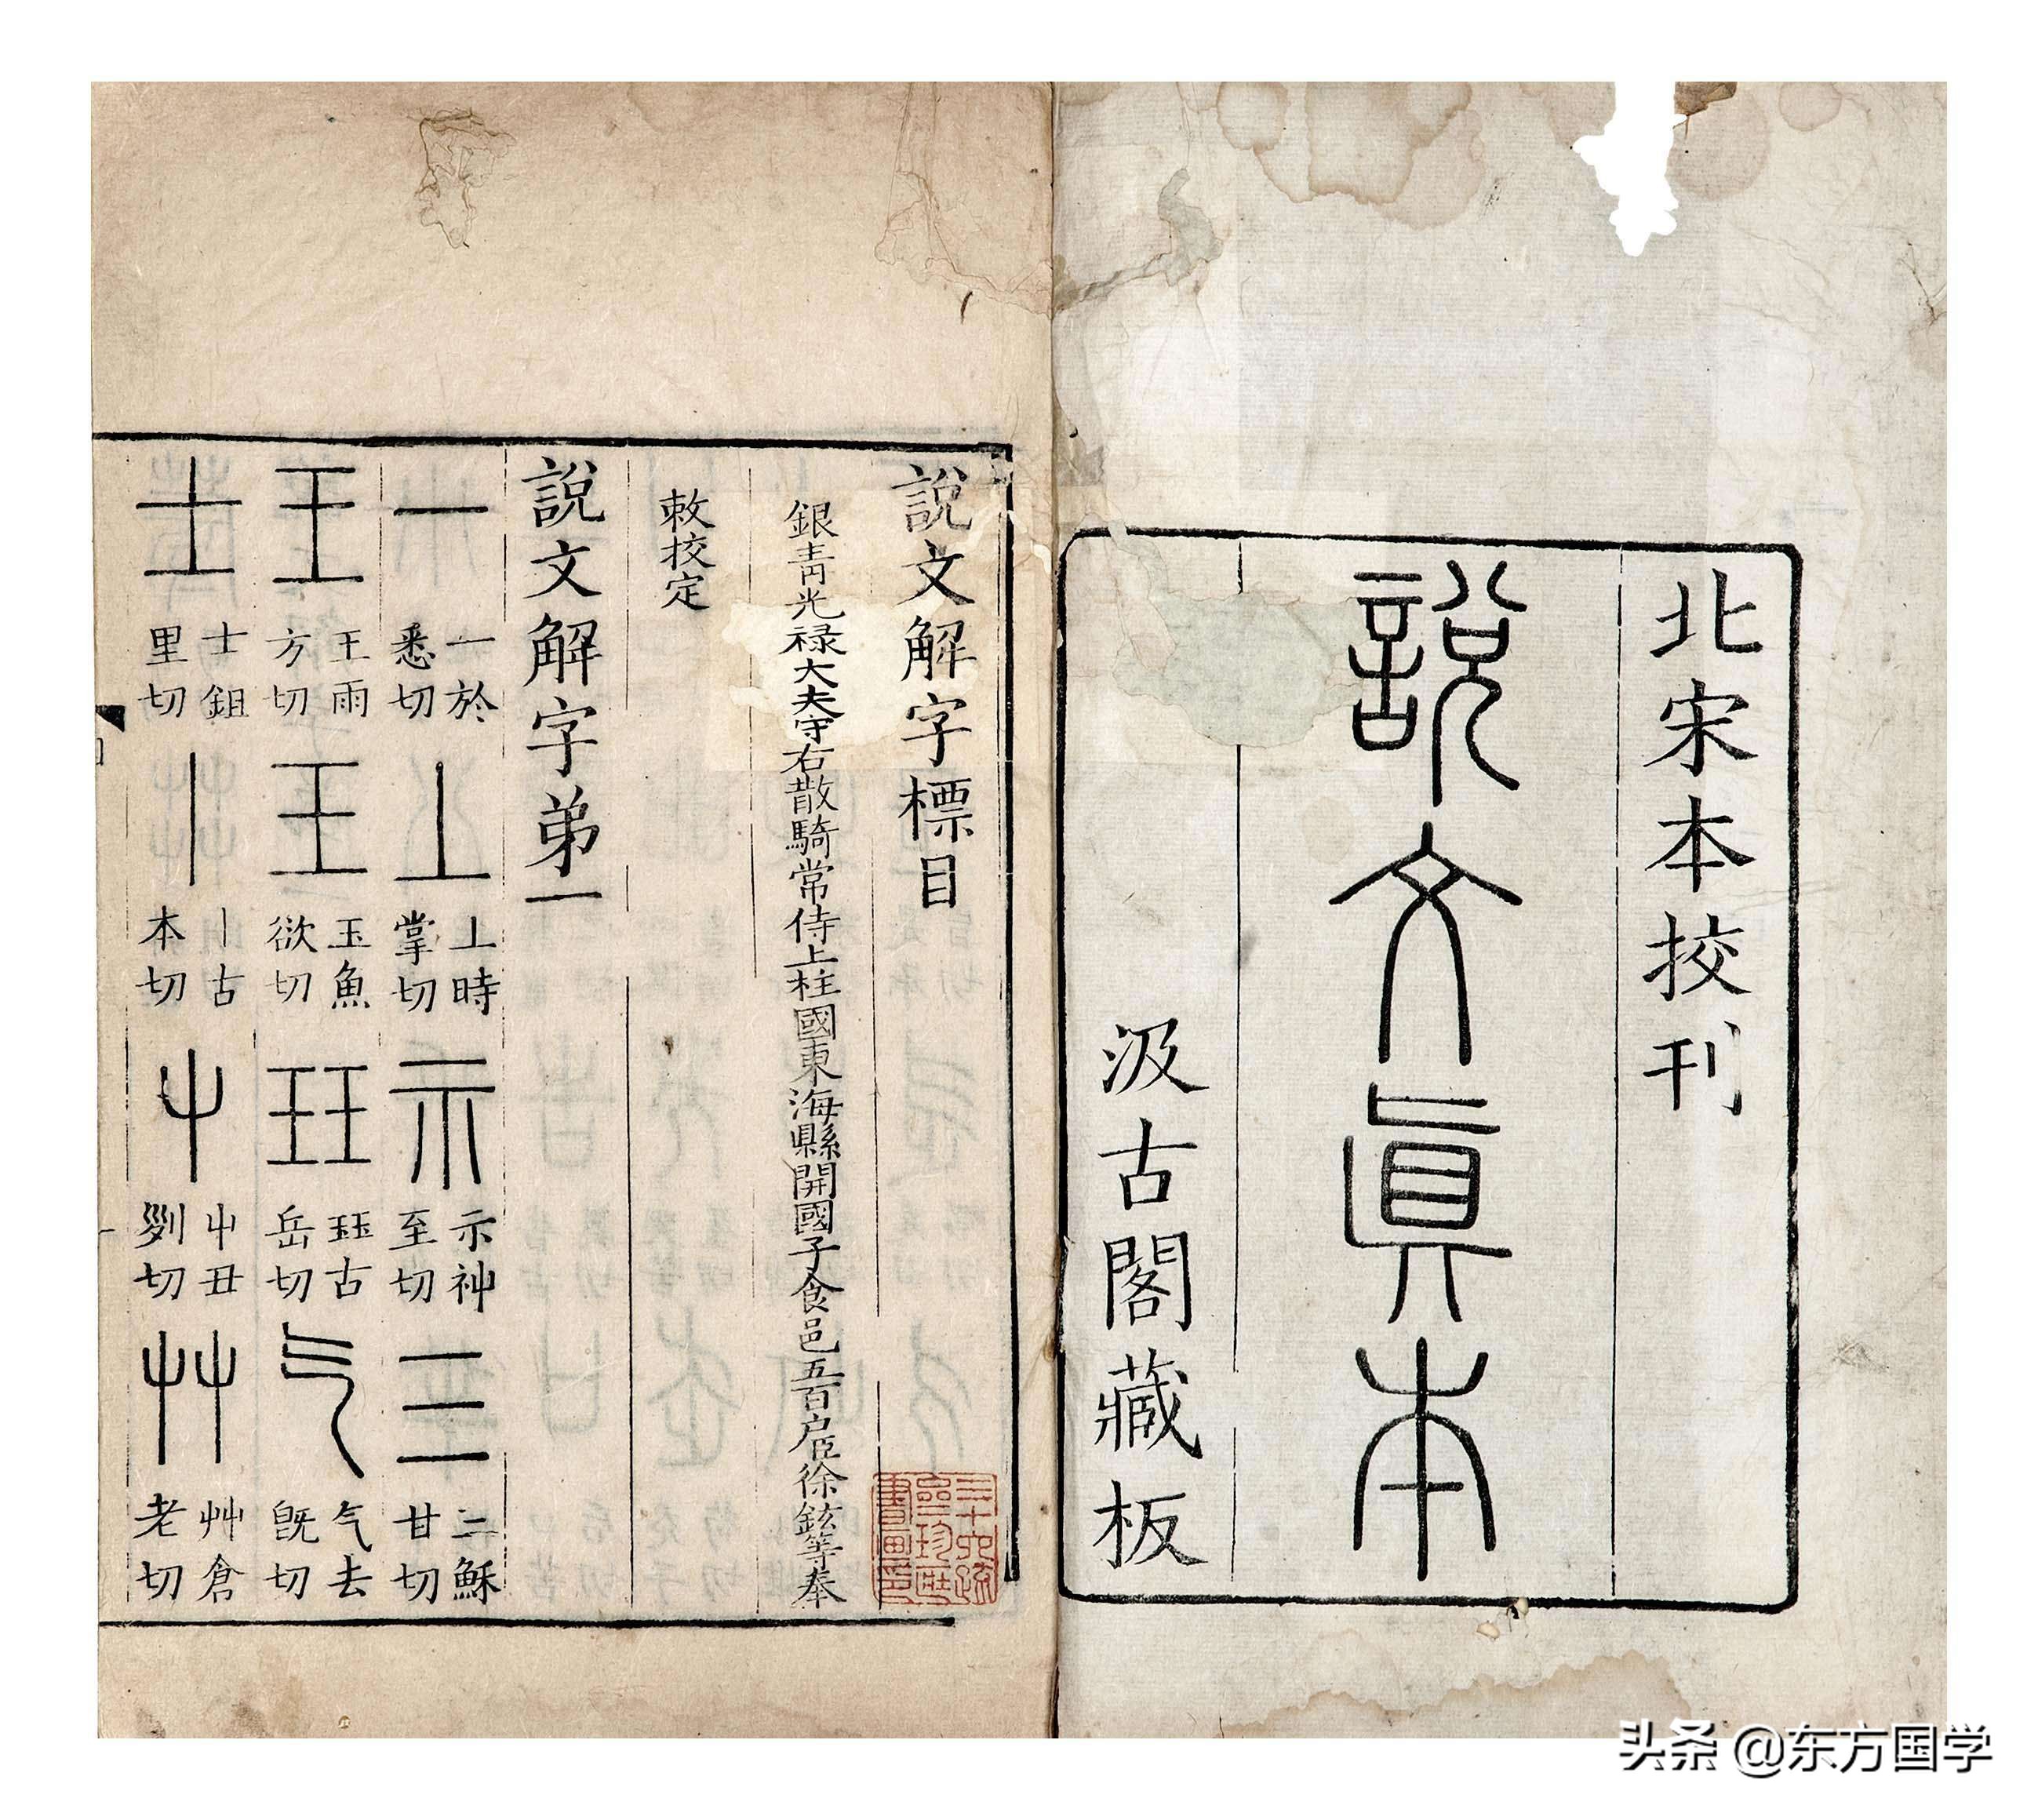 北宋本挍刊
說文眞本
汲古閣藏板
說文解字標目
銀青光禄大夫守右散騎常侍上柱國東海縣開國子食邑五百户臣徐鉉等奉
敕校定
說文解字弟一
一 一於悉切 丄 丄時掌切 示 示神至切 三 三穌甘切
王 王雨方切 玉 玉魚欲切 玨 玨古岳切 气 气去旣切
士 士鉏里切 丨 丨古本切 屮 屮丑列切 艸 艸倉老切
头条 @东方国学